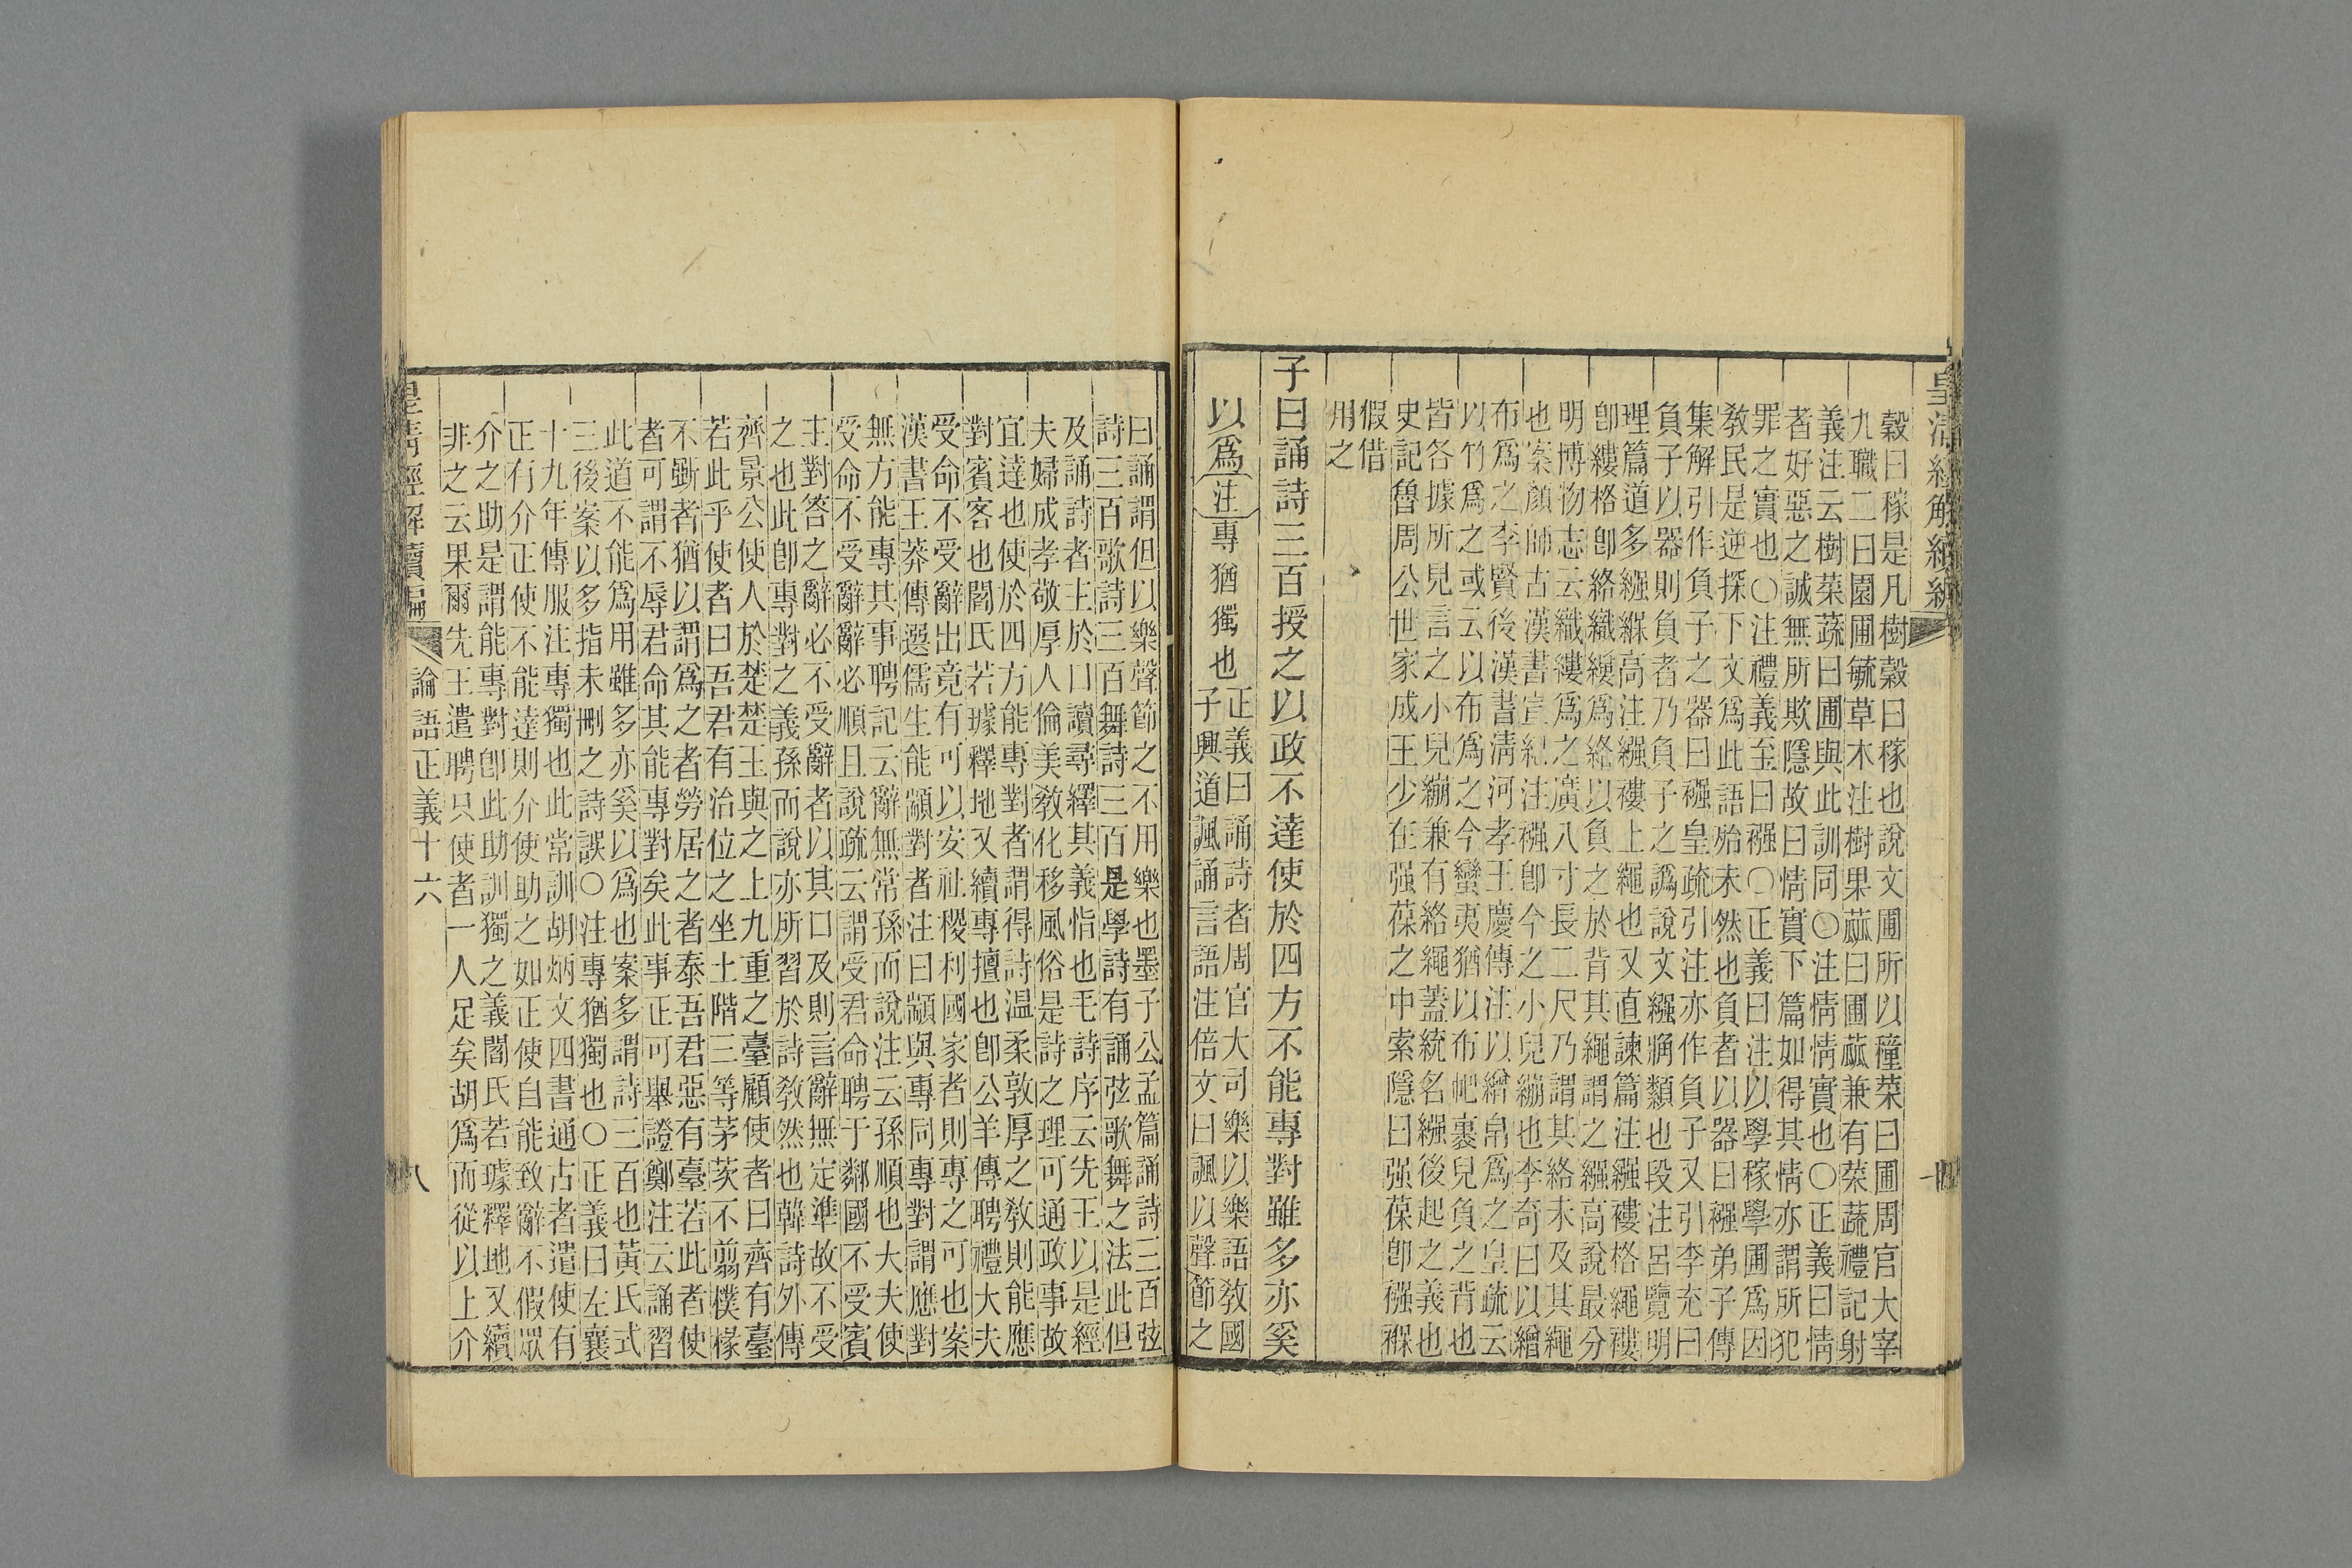 皇清經解續編
穀曰稼是凡樹穀曰稼也說文圃所以穜菜曰圃周官大宰
九職二曰園圃毓草木注樹果蓏曰圃蓏兼有菜蔬禮記射
義注云樹菜蔬曰圃與此訓同○注情情實也○正義曰情
者好惡之誠無所欺隱故曰情實下篇如得其情亦謂所犯
罪之實也○注禮義至曰襁○正義曰注以學稼學圃爲因
教民是逆探下文爲此語殆未然也負者以器曰襁弟子傳
集解引作負子之器曰襁皇疏引注亦作負子又引李充曰
負子以器則負者乃負子之譌說文繦觕類也段注呂覽明
理篇道多繦緥高注繦褸上繩也又直諫篇注繦褸格繩褸
卽縷格卽絡織縷爲絡以負之於背其繩謂之繦高說最分
明博物志云織縷爲之廣八寸長二尺乃謂其絡未及其繩
也案顏師古漢書宣紀注襁卽今之小兒繃也李奇曰以繒
布爲之李賢後漢書淸河孝王慶傳注以繒帛爲之皇疏云
以竹爲之或云以布爲之今蠻夷猶以布帊裹兒負之背也
皆各據所見言之小兒繃兼有絡繩蓋統名繦後起之義也
史記魯周公世家成王少在强葆之中索隱曰强葆卽襁褓
假借
用之
子曰誦詩三百授之以政不達使於四方不能專對雖多亦奚
以爲注專猶獨也正義曰誦詩者周官大司樂以樂語教國
子興道諷誦言語注倍文曰諷以聲節之
曰誦謂但以樂聲節之不用樂也墨子公孟篇誦詩三百弦
詩三百歌詩三百舞詩三百是學詩有誦弦歌舞之法此但
及誦詩者主於口讀尋繹其義恉也毛詩序云先王以是經
夫婦成孝敬厚人倫美教化移風俗是詩之理可通政事故
宜達也使於四方能專對者謂得詩温柔敦厚之教則能應
對賓客也閻氏若璩釋地又續專擅也卽公羊傳聘禮大夫
受命不受辭出竟有可以安社稷利國家者則專之可也案
漢書王莽傳選儒生能顓對者注曰顓與專同專對謂應對
無方能專其事聘記云辭無常孫而說注云孫順也大夫使
受命不受辭辭必順且說疏云謂受君命聘于鄰國不受賓
主對答之辭必不受辭者以其口及則言辭無定準故不受
之也此卽專對之義孫而說亦所習於詩教然也韓詩外傳
齊景公使人於楚楚王與之上九重之臺顧使者曰齊有臺
若此乎使者曰吾君有治位之坐土階三等茅茨不翦樸椽
不斲者猶以謂爲之者勞居之者泰吾君惡有臺若此者使
者可謂不辱君命其能專對矣此事正可舉證鄭注云誦習
此道不能爲用雖多亦奚以爲也案多謂詩三百也黃氏式
三後案以多指未刪之詩誤○注專猶獨也○正義曰左襄
十九年傳服注專獨也此常訓胡炳文四書通古者遣使有
正有介正使不能達則介使助之如正使自能致辭不假眾
介之助是謂能專對卽此助訓獨之義閻氏若璩釋地又續
非之云果爾先王遣聘只使者一人足矣胡爲而從以上介
皇清經解續編 論語正義十六 八